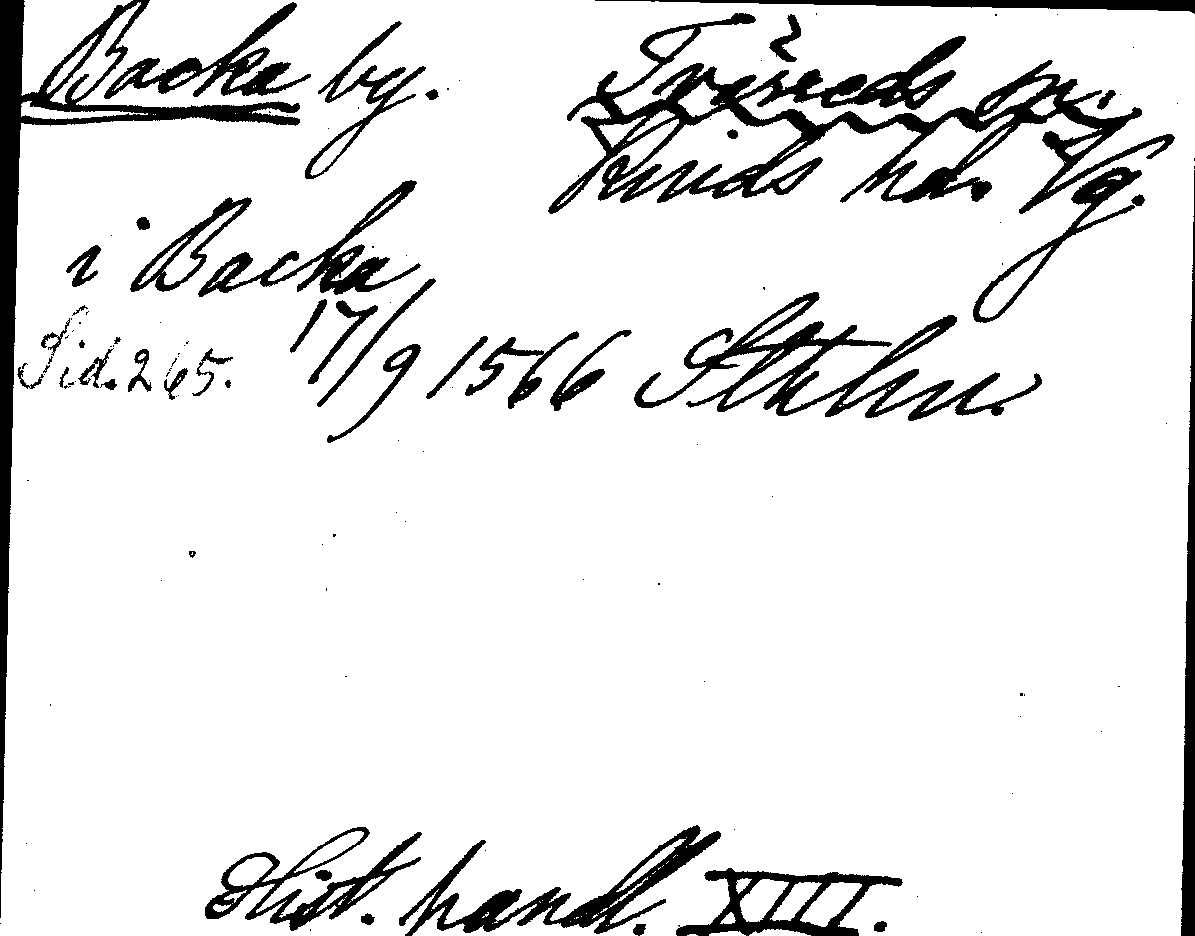 Backa by. Tvärreds sn.
Kinds hd. Vg.
i Backa
Sid. 265. 17/9 1566 Sthlm.
Hist. handl. XIII.